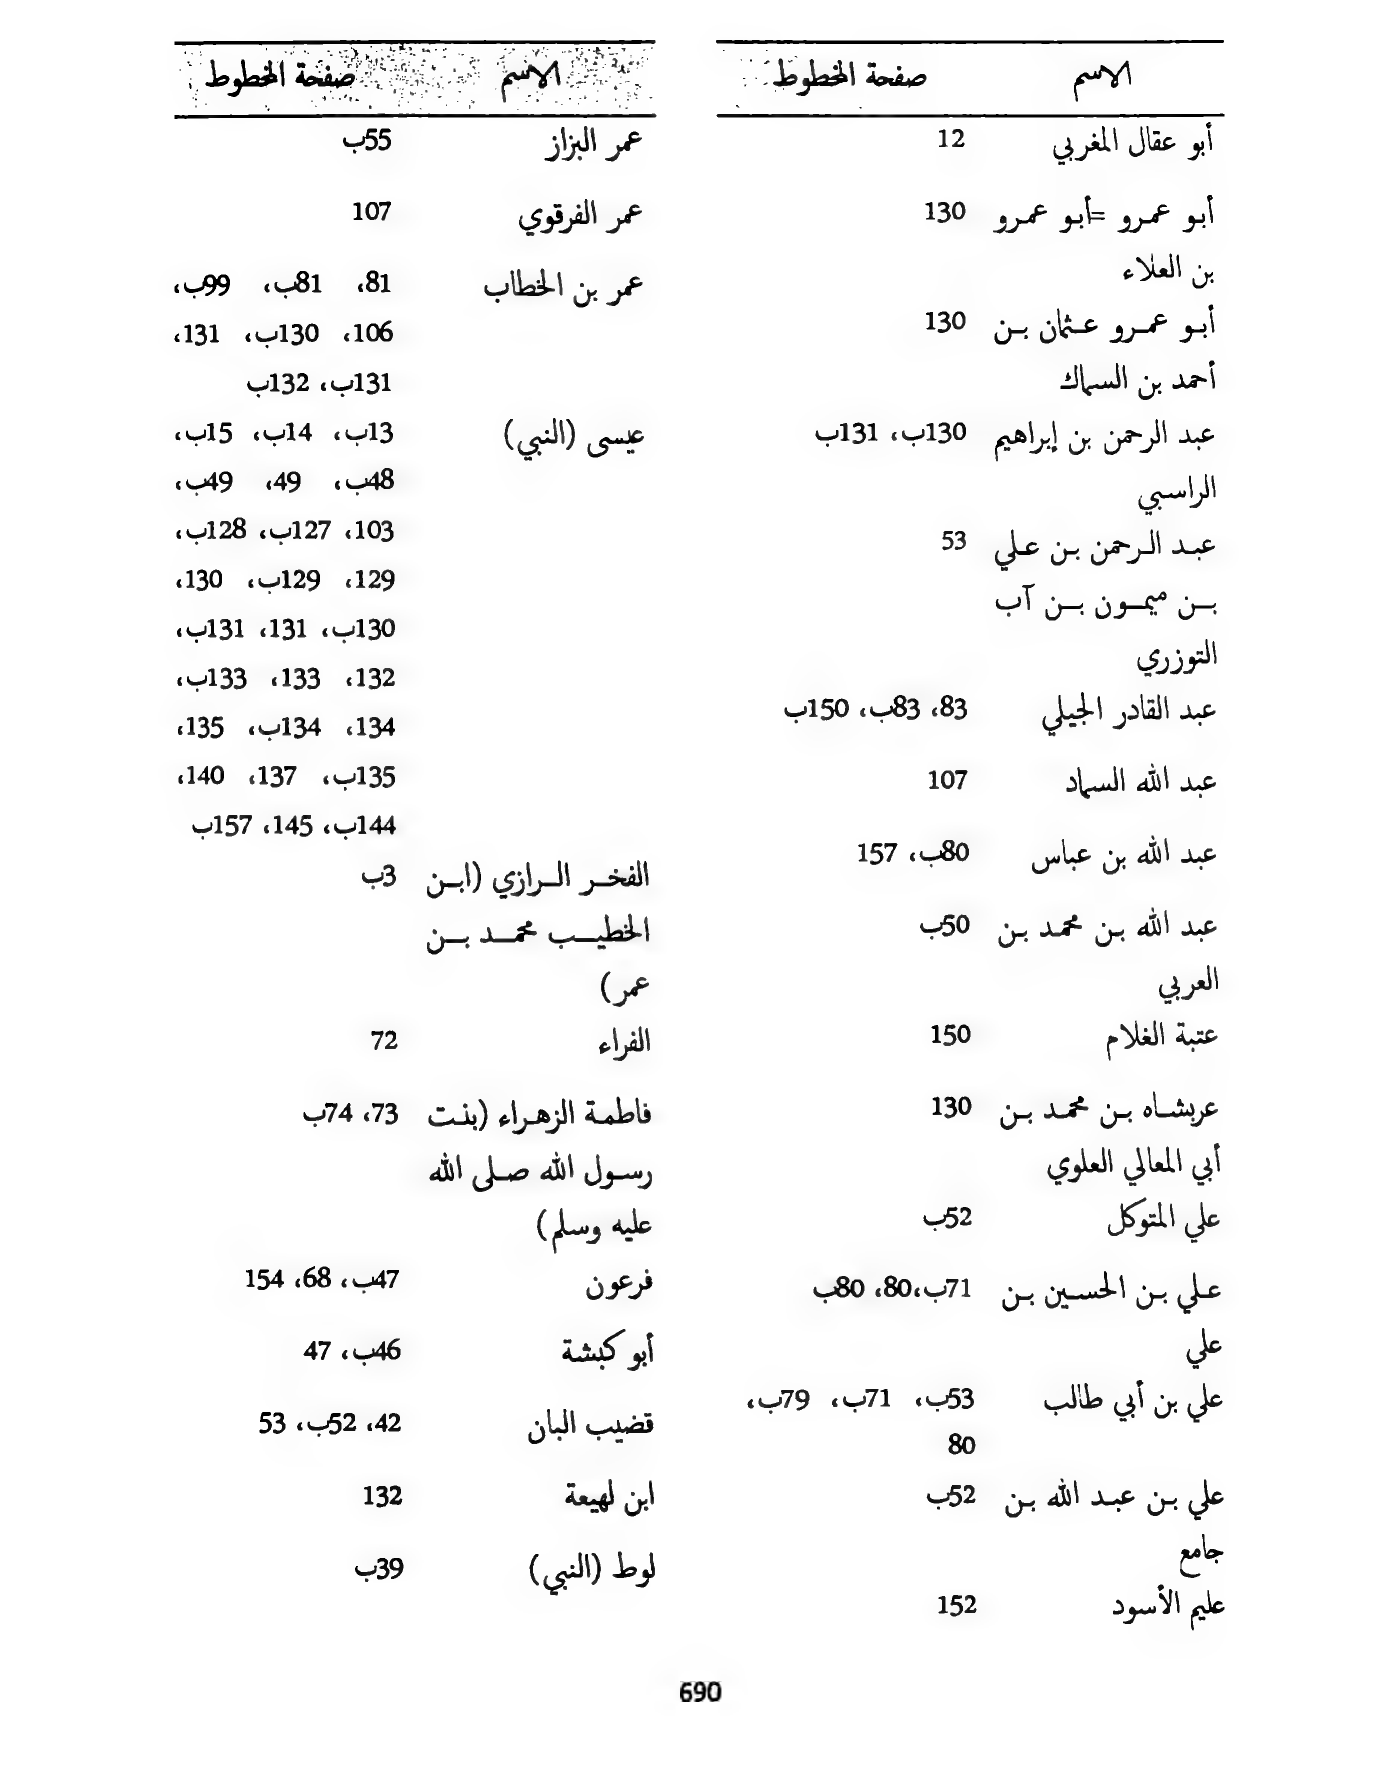 الاسم صفحة المخطوط
أبو عقال المغربي 12
أبو عمرو =أبو عمرو 130
بن العلاء
أبو عمرو عثمان بن 130
أحمد بن السماك
عبد الرحمن بن إبراهيم 130ب، 131ب
الراسبي
عبد الرحمن بن علي 53
بن ميمون بن آب
التوزري
عبد القادر الجيلي 83، 83ب، 150ب
عبد الله السماد 107
عبد الله بن عباس 80ب، 157
عبد الله بن محمد بن 50ب
العربي
عتبة الغلام 150
عربشاه بن محمد بن 130
أبي المعالي العلوي
علي المتوكل 52ب
علي بن الحسين بن 71ب،80، 80ب
علي
علي بن أبي طالب 53ب، 71ب، 79ب،
80
علي بن عبد الله بن 52ب
جامع
عليم الأسود 152
الاسم صفحة المخطوط
عمر البزاز 55ب
عمر الفرقوي 107
عمر بن الخطاب 81، 81ب، 99ب،
106، 130ب، 131،
131ب، 132ب
عيسى (النبي) 13ب، 14ب، 15ب،
48ب، 49، 49ب،
103، 127ب، 128ب،
129، 129ب، 130،
130ب، 131، 131ب،
132، 133، 133ب،
134، 134ب، 135،
135ب، 137، 140،
144ب، 145، 157ب
الفخر الرازي (ابن 3ب
الخطيب محمد بن
عمر)
الفراء 72
فاطمة الزهراء (بنت 73، 74ب
رسول الله صلى الله
عليه وسلم)
فرعون 47ب، 68، 154
أبو كبشة 46ب، 47
قضيب البان 42، 52ب، 53
ابن لهيعة 132
لوط (النبي) 39ب
690